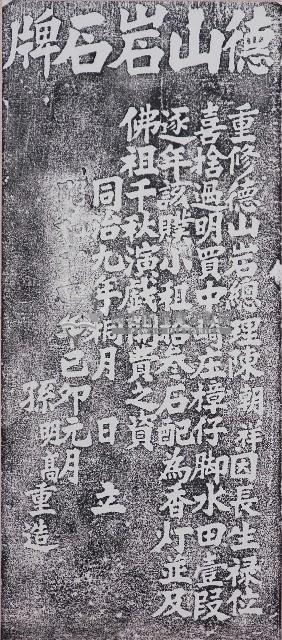 德山岩石牌
重修德山岩總理陳朝祥因長生祿位
喜捨過明買中崎庄樟仔脚水田壹段
逐年該小租叁石配為香灯並及
佛祖千秋演戲開費之資
同治九年桐月 日 立
年己卯元月
孫明髙重造